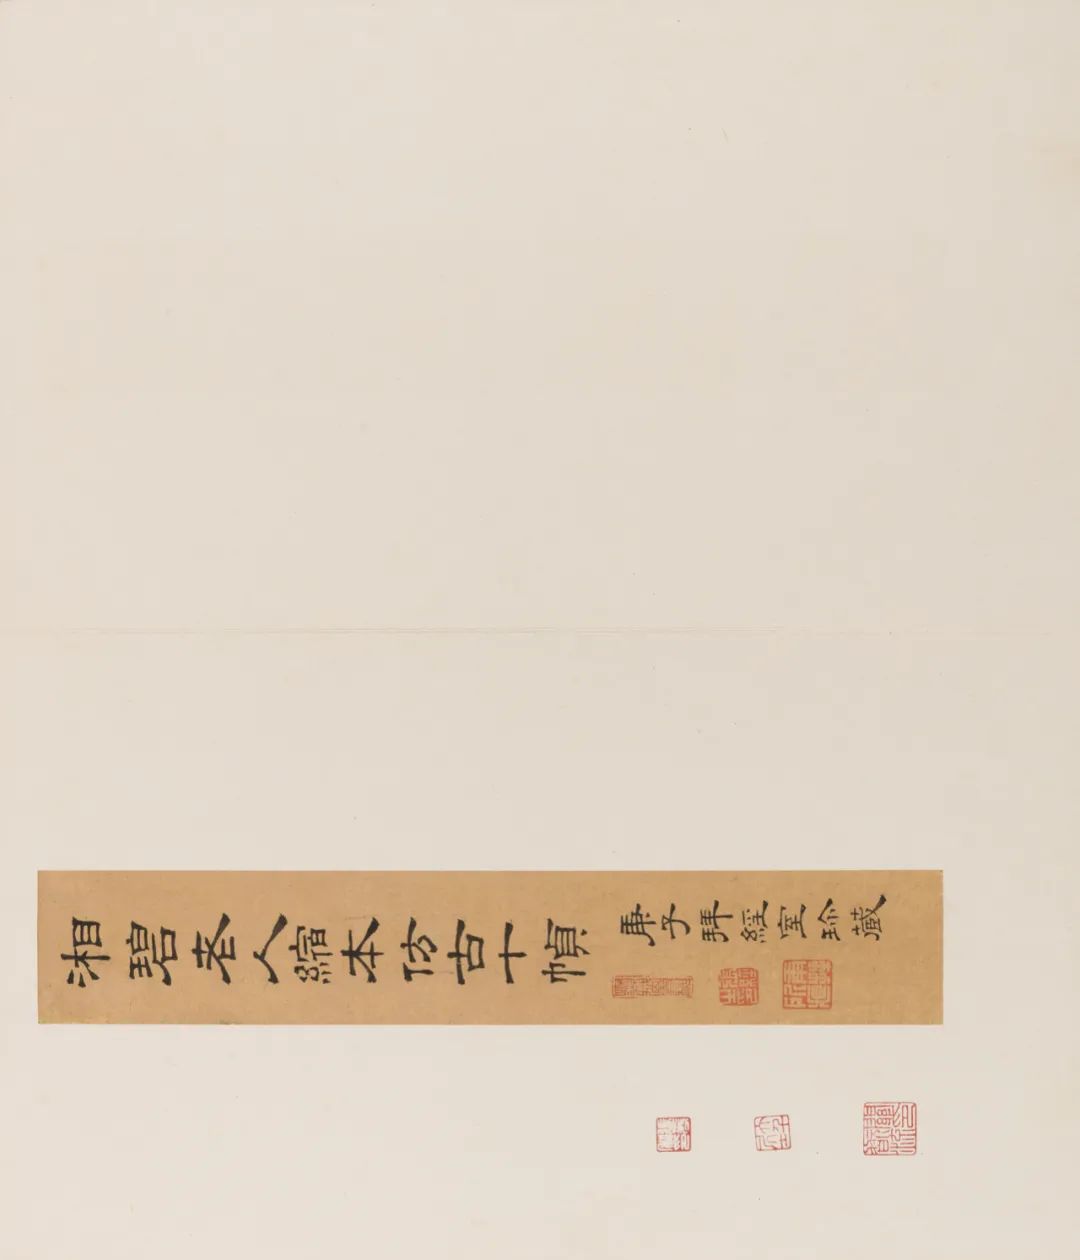 湘碧老人縮本仿古十幀
庚子拜經室珍藏